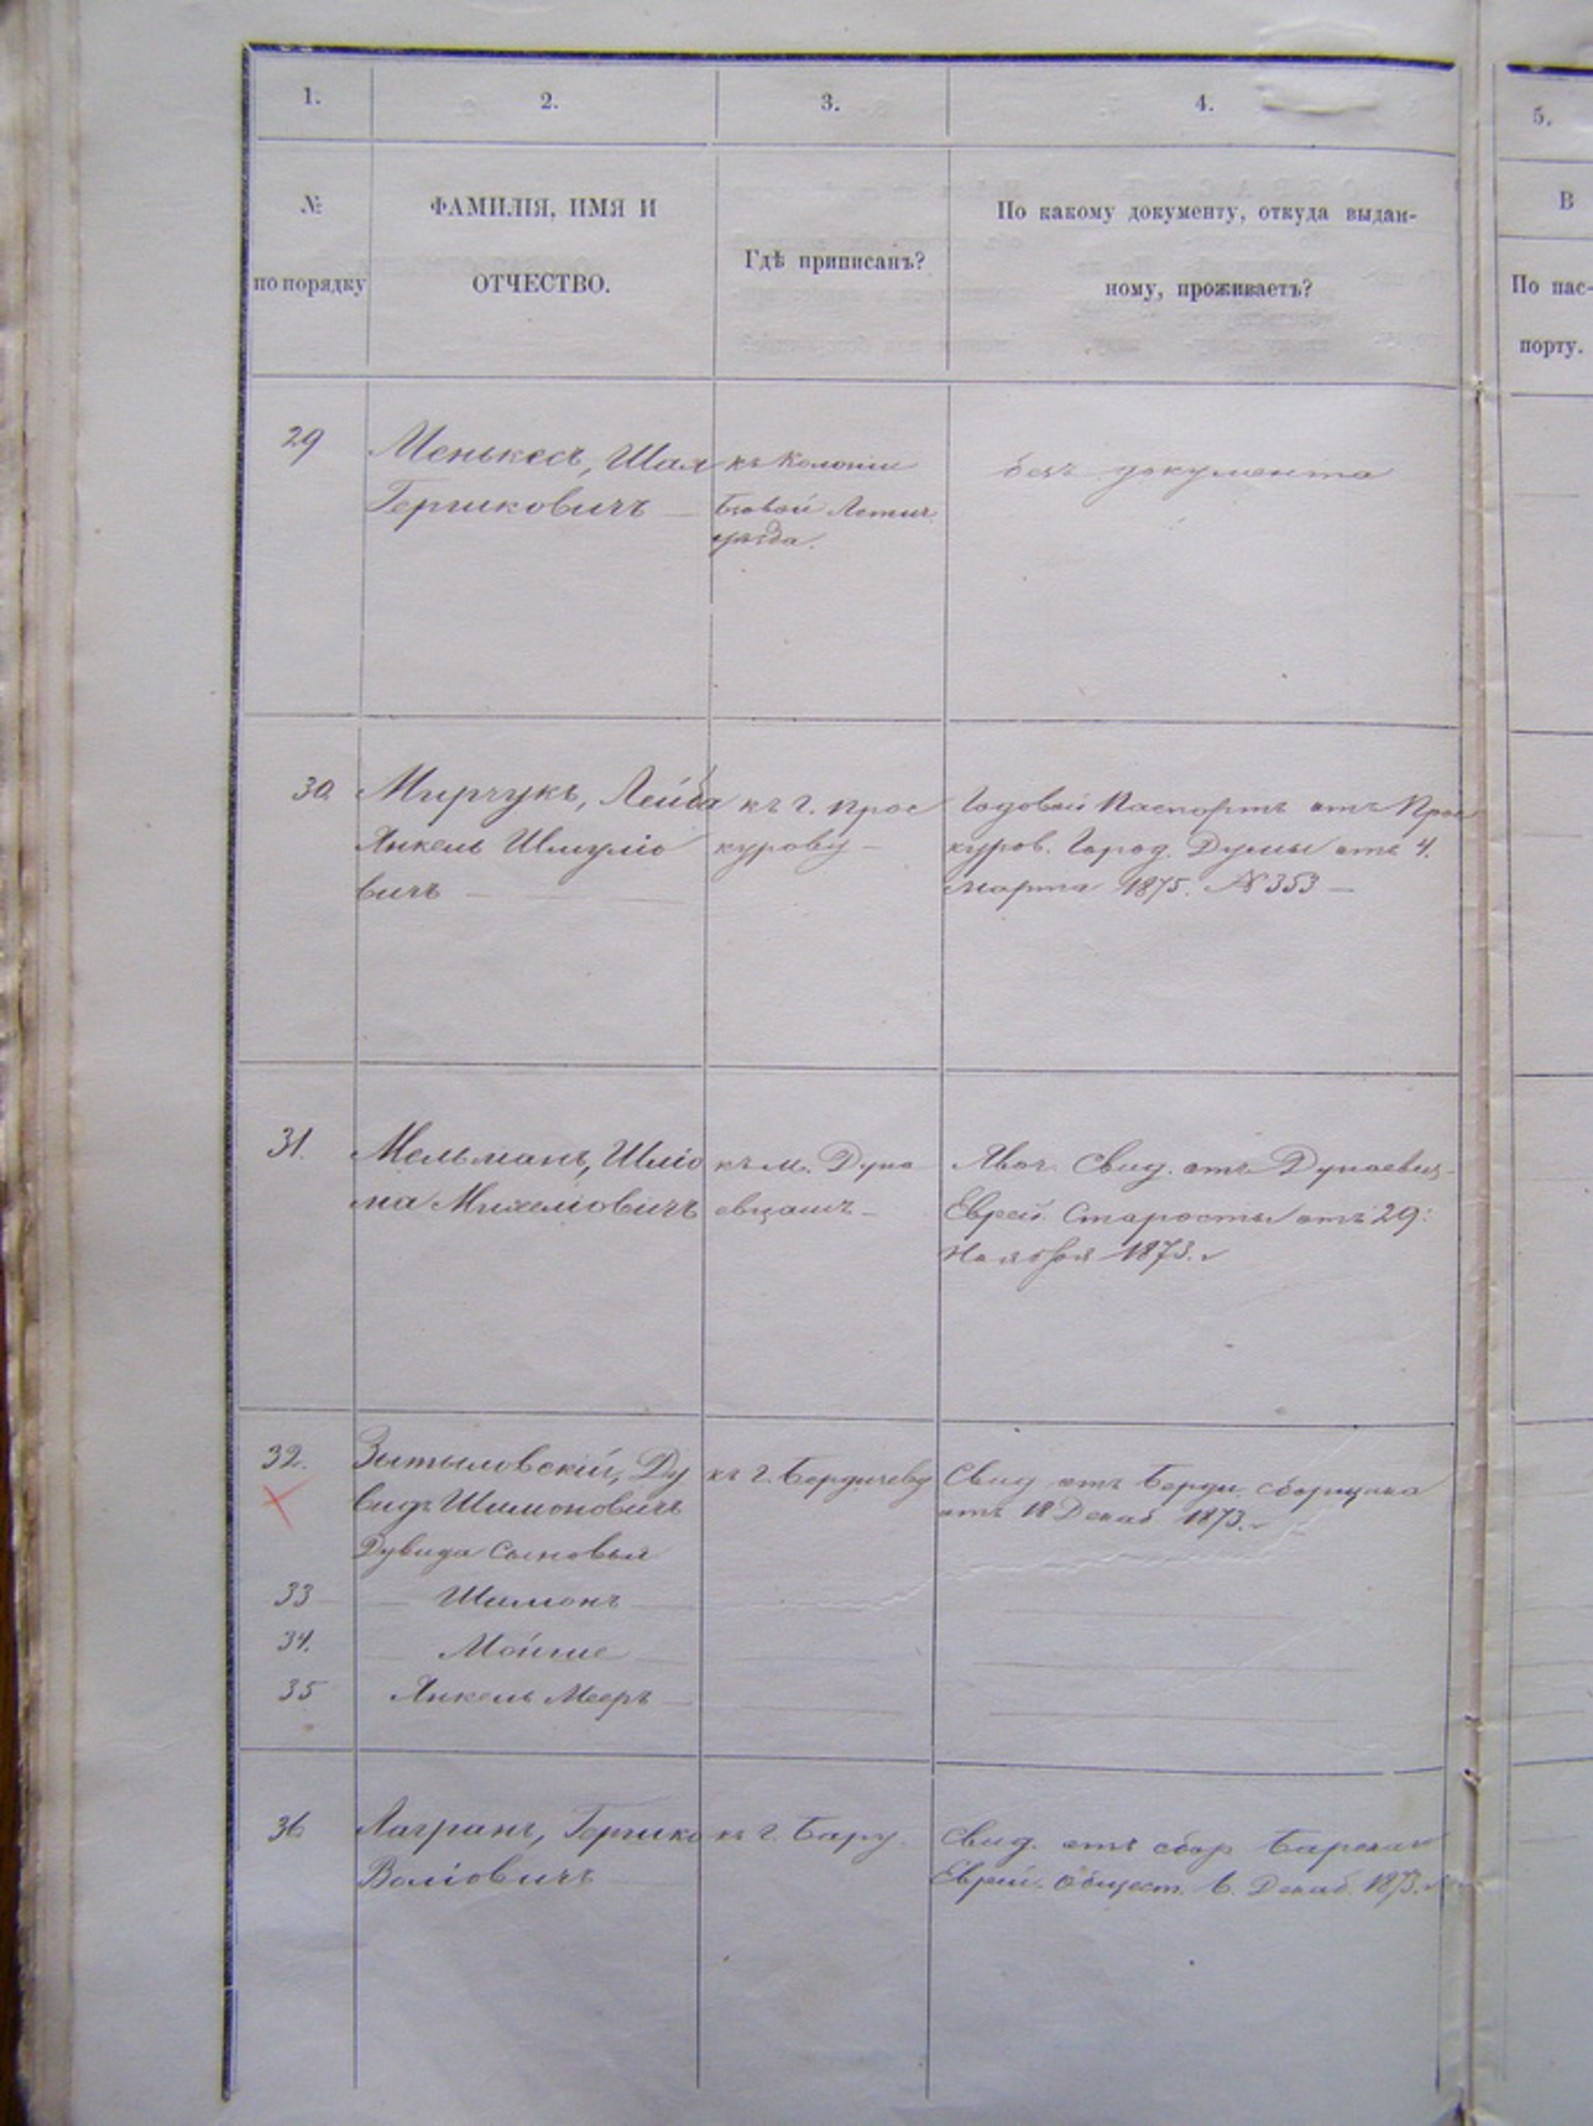 1. 2. 3. 4. 5.
№ по порядку
ФАМИЛІЯ, ИМЯ И
ОТЧЕСТВО.
Гдѣ приписанъ?
По какому документу, откуда выдан-
ному, проживаетъ?
В
По пас-
порту.
29
Менькесъ, Шая
Гершковичъ —
къ Колоніи
Летич.
уѣзда.
безъ документа
30.
Мирчукъ, Лейба
Янкель Шмуліо
вичъ —
къ г. Прос
курову —
Годовой Паспортъ отъ Прос
куров. Город. Думы отъ 4.
марта 1875. № 353 —
31.
Мельманъ, Шлio
ма Михеліовичъ
къ м. Дуна
евцамъ —
Свид. отъ Дунаевец-
Еврей. Старосты отъ 29.
Ноября 1873.
32.
Зытыловскій, Ду
видъ Шимоновичъ
Дувида Сыновья
къ г. Бердичеву
Свид отъ Берди. сборщика
отъ 18 Декаб 1873.
33 — Шимонъ —
34. — Мойше —
35 Янкель Мееръ —
36
Лагранъ, Гершко
Волiовичъ —
къ г. Бару.
Свид. отъ сбор Барскаго
Еврей. Общест. 6. Декаб. 1873.